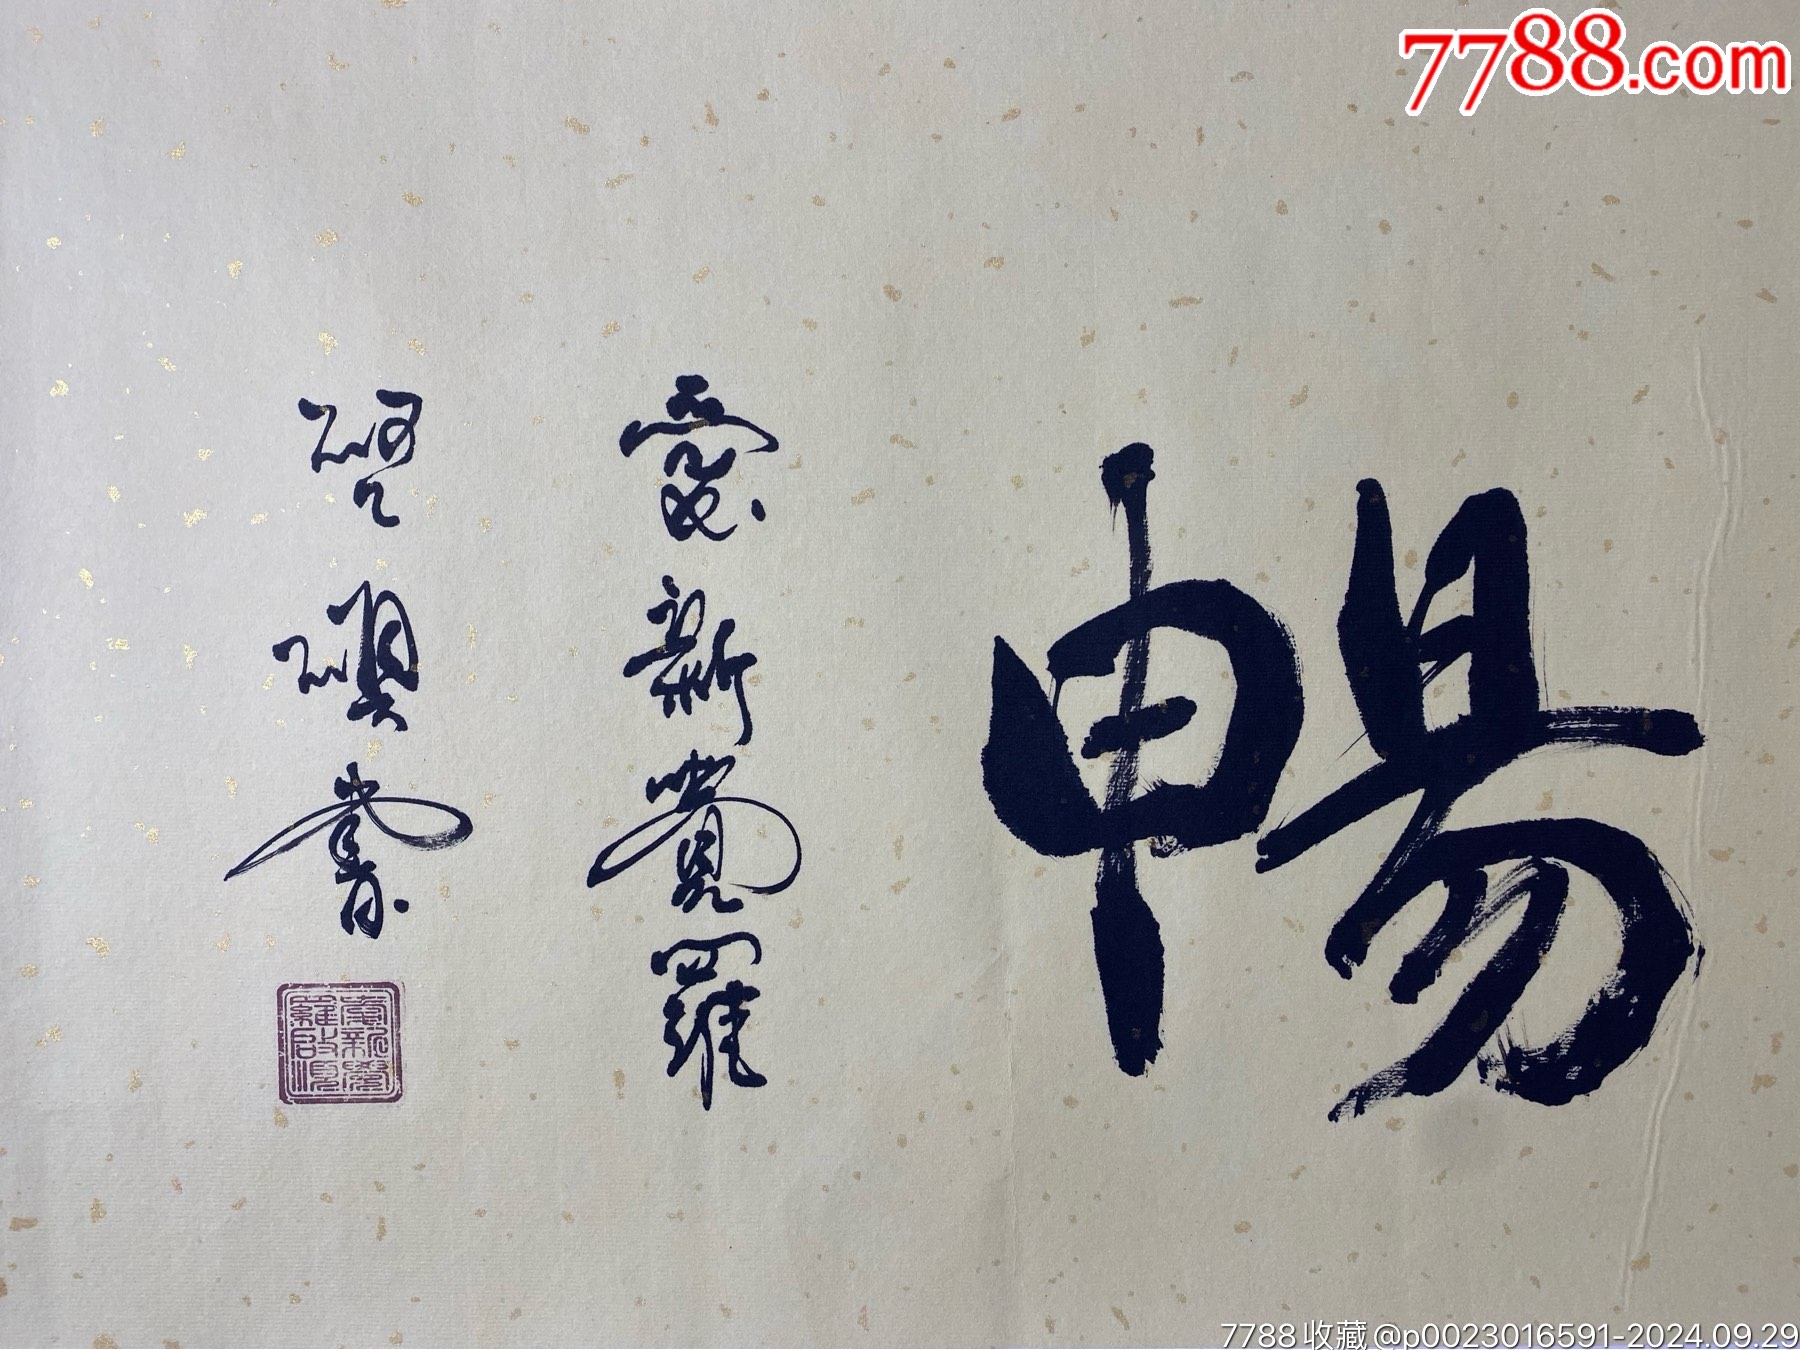 7788.com
暢
愛新覺羅
啓書
愛新覺
羅啟
7788收藏@p0023016591-2024.09.29